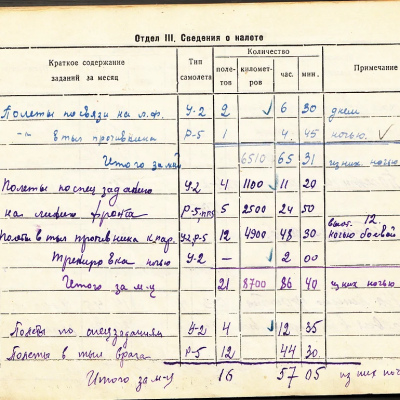 Отдел III. Сведения о налете
Краткое содержание заданий за месяц | Тип самолета | Количество | Примечание
полетов | километров | час. | мин.
Полеты по связи на л.ф. | У-2 | 2 | | 6 | 30 | днем
-"- в тыл противника | Р-5 | 1 | | 4 | 45 | ночью.
Итого за м-ц | | | 6510 | 65 | 31 | из них ночью
Полеты по спец заданию | У-2 | 4 | 1100 | 11 | 20
на линию фронта | Р-5, | 5 | 2500 | 24 | 50
12.
Полеты в тыл противника | У2,Р-5 | 12 | 4900 | 48 | 30 | ночью боевой
Тренировка ночью | У-2 | — | | 2 | 00
Итого за м-ц | | 21 | 8700 | 86 | 40 | из них ночью
Полеты по спецзаданиям | У-2 | 4 | | 12 | 35
Полеты в тыл врага | Р-5 | 12 | | 44 | 30
Итого за м-ц | | 16 | | 57 | 05 | из них